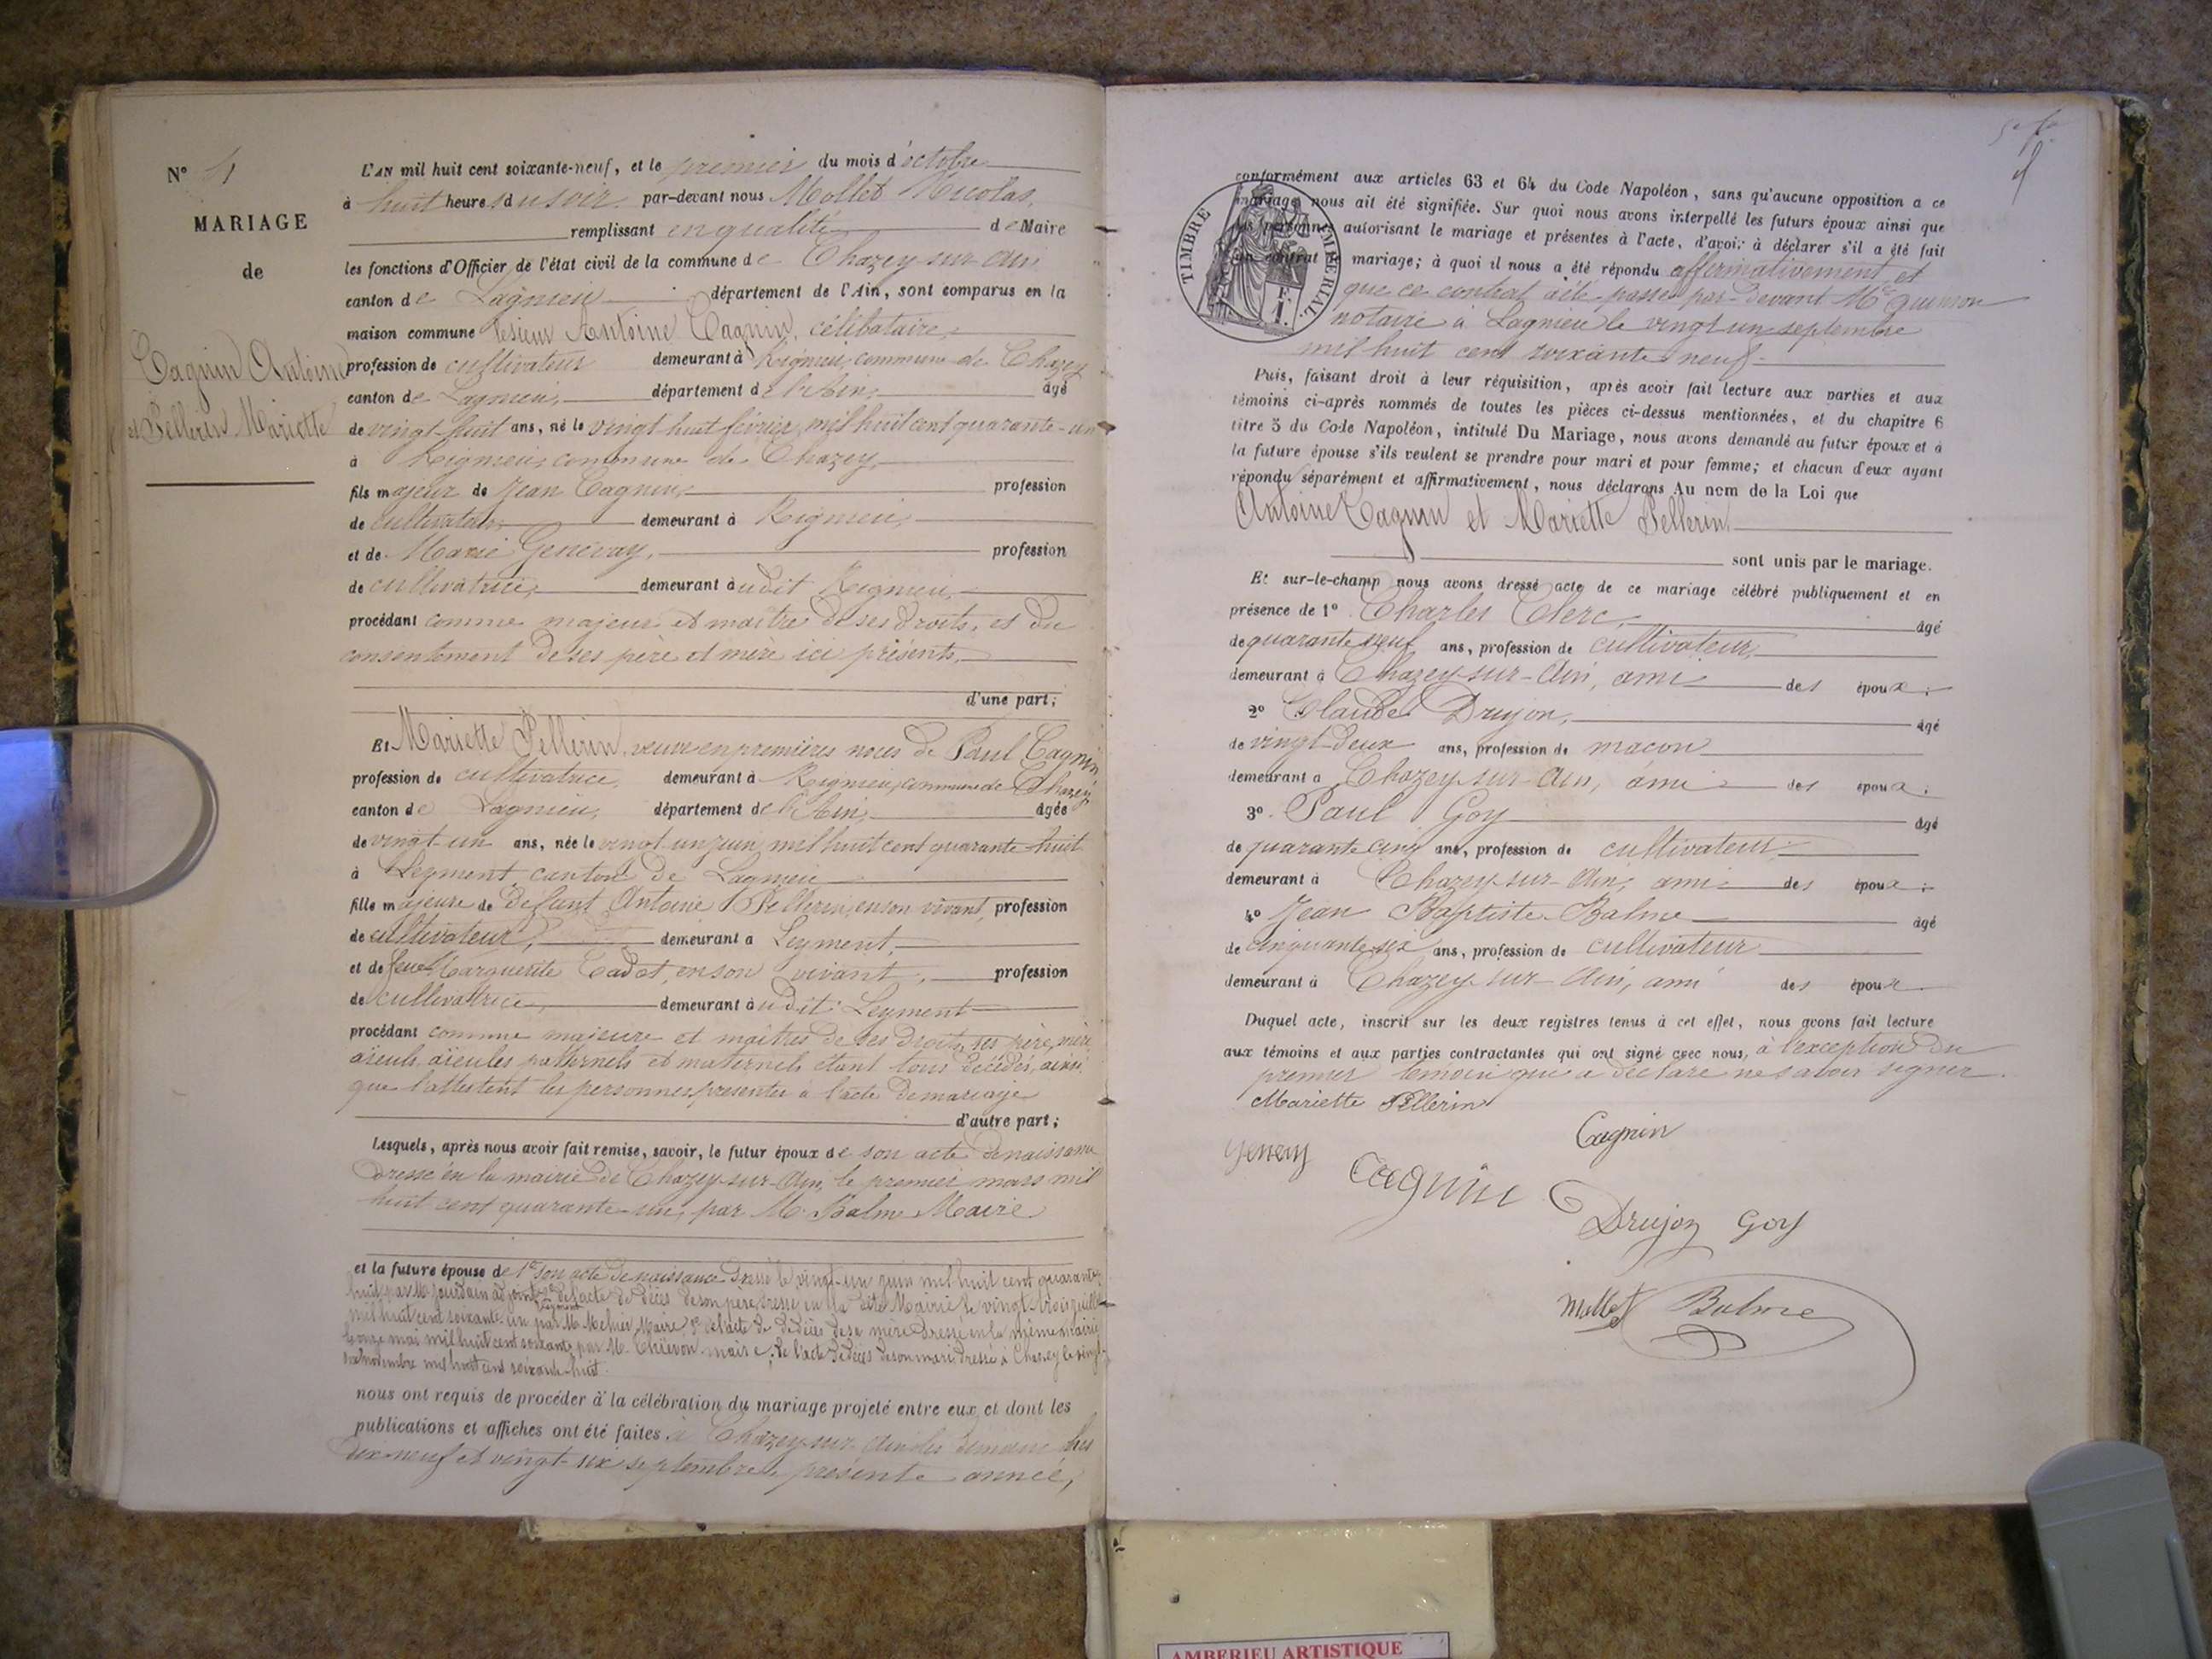 N° 4
MARIAGE
de
Cagnin Antoine
et Pellerin Mariette
L'AN mil huit cent soixante-neuf, et le premier du mois d'octobre
à huit heures du soir par-devant nous Mollet Nicolas,
remplissant en qualité de Maire
les fonctions d'Officier de l'état civil de la commune de Chazey-sur-Ain
canton de Lagnieu département de l'Ain, sont comparus en la
maison commune le sieur Antoine Cagnin, célibataire,
profession de cultivateur demeurant à Rignieu, commune de Chazey
canton de Lagnieu, département de l'Ain, âgé
de vingt-huit ans, né le vingt-huit février mil huit cent quarante-un
à Rignieu, commune de Chazey,
fils majeur de Jean Cagnin, profession
de cultivateur demeurant à Rignieu,
et de Marie Genevay, profession
de cultivatrice, demeurant audit Rignieu,
procédant comme majeur et maître de ses droits, et du
consentement de ses père et mère ici présents,
d'une part;
Et Mariette Pellerin, veuve en premières noces de Paul Cagnin
profession de cultivatrice, demeurant à Rignieu, commune de Chazey,
canton de Lagnieu, département de l'Ain, âgée
de vingt-un ans, née le vingt-un juin mil huit cent quarante-huit
à Leyment canton de Lagnieu
fille majeure de défunt Antoine Pellerin, en son vivant, profession
de cultivateur, demeurant à Leyment,
et de feue Marguerite Cadot, en son vivant, profession
de cultivatrice, demeurant audit Leyment
procédant comme majeure et maîtres de ses droits, ses père, mère
aïeuls, aïeules paternels et maternels étant tous décédés, ainsi
que l'attestent les personnes présentes à l'acte de mariage
d'autre part;
Lesquels, après nous avoir fait remise, savoir, le futur époux de son acte de naissance
dressé en la mairie de Chazey-sur-Ain, le premier mars mil
huit cent quarante-un, par M. Balme Maire
et la future épouse de 1° son acte de naissance dressé le vingt-un juin mil huit cent quarante
huit par M. Jourdain adjoint 2° de l'acte de décès de son père dressé en la dite Mairie le vingt-trois juillet
Leyment
mil huit cent soixante-un par M. Maire 3° de l'acte de décès de sa mère dressé en la même mairie
le onze mai mil huit cent soixante par M. maire, de l'acte de décès de son mari dressé à Chazey le vingt-
novembre mil huit cent soixante-huit.
nous ont requis de procéder à la célébration du mariage projeté entre eux et dont les
publications et affiches ont été faites à Chazey-sur-Ain les dimanches
dix-neuf et vingt-six septembre, présente année,
conformément aux articles 63 et 64 du Code Napoléon, sans qu'aucune opposition a ce
mariage nous ait été signifiée. Sur quoi nous avons interpellé les futurs époux ainsi que
les personnes autorisant le mariage et présentes à l'acte, d'avoir à déclarer s'il a été fait
un contrat mariage; à quoi il nous a été répondu affirmativement et
que ce contrat a été passé par-devant Me
notaire à Lagnieu le vingt un septembre
mil huit cent soixante neuf
TIMBRE IMPERIAL
F.
1.
Puis, faisant droit à leur réquisition, après avoir fait lecture aux parties et aux
témoins ci-après nommés de toutes les pièces ci-dessus mentionnées, et du chapitre 6
titre 5 du Code Napoléon, intitulé Du Mariage, nous avons demandé au futur époux et à
la future épouse s'ils veulent se prendre pour mari et pour femme; et chacun d'eux ayant
répondu séparément et affirmativement, nous déclarons Au nom de la Loi que
Antoine Cagnin et Mariette Pellerin
sont unis par le mariage.
Et sur-le-champ nous avons dressé acte de ce mariage célébré publiquement et en
présence de 1° Charles Clerc, âgé
de quarante neuf ans, profession de cultivateur,
demeurant à Chazey-sur-Ain, ami des époux;
2° Claude Drujon, âgé
de vingt-deux ans, profession de maçon
demeurant à Chazey-sur-Ain, ami des époux;
3° Paul Goy âgé
de quarante cinq ans, profession de cultivateur
demeurant à Chazey-sur-Ain, ami des époux;
4° Jean Baptiste Balme âgé
de cinquante-six ans, profession de cultivateur
demeurant à Chazey-sur-Ain, ami des époux
Duquel acte, inscrit sur les deux registres tenus à cet effet, nous avons fait lecture
aux témoins et aux parties contractantes qui ont signé avec nous, à l'exception du
premier témoin qui a déclaré ne savoir signer.
Mariette Pellerin
Cagnin
Cagnin
Drujon Goy
Mollet Balme
AMBERIEU ARTISTIQUE